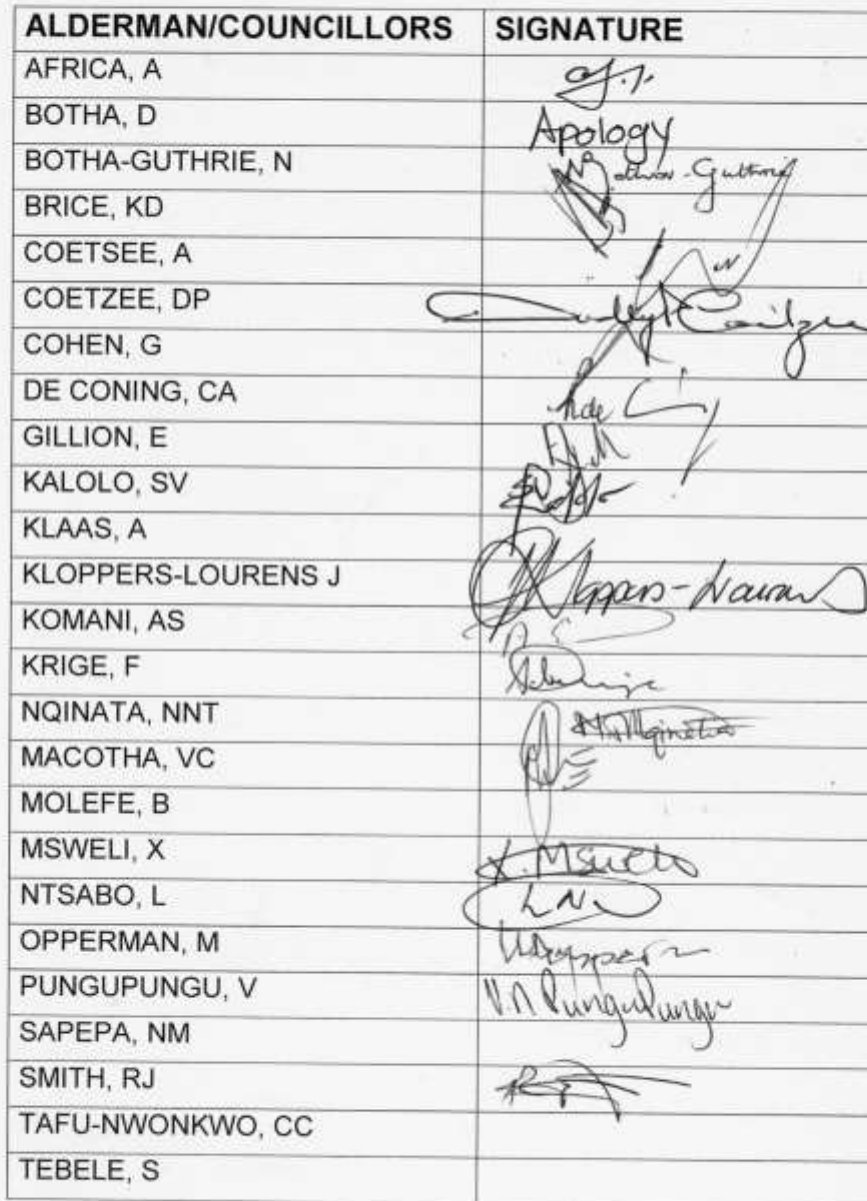 ALDERMAN/COUNCILLORS SIGNATURE
AFRICA, A
BOTHA, D Apology
BOTHA-GUTHRIE, N
BRICE, KD
COETSEE, A
COETZEE, DP
COHEN, G
DE CONING, CA
GILLION, E
KALOLO, SV
KLAAS, A
KLOPPERS-LOURENS J
KOMANI, AS
KRIGE, F
NQINATA, NNT
MACOTHA, VC
MOLEFE, B
MSWELI, X X. Msweli
NTSABO, L LN
OPPERMAN, M
PUNGUPUNGU, V V.N PunguPungu
SAPEPA, NM
SMITH, RJ
TAFU-NWONKWO, CC
TEBELE, S